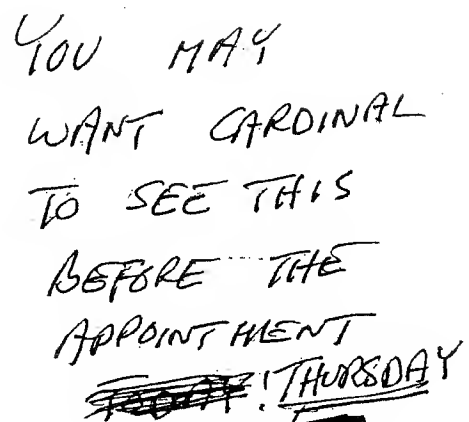 YOU MAY
WANT CARDINAL
TO SEE THIS
BEFORE THE
APPOINTMENT
! THURSDAY